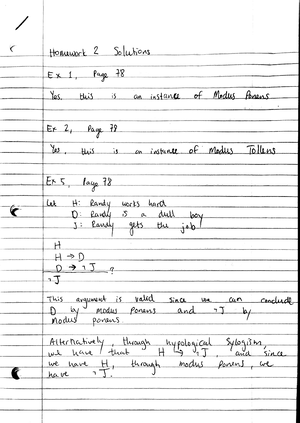 Homework 2 Solutions
Ex 1, Page 78
Yes. this is an instance of Modus Ponens
Ex 2, Page 78
Yes, this is an instance of Modus Tollens
Ex 5, Page 78
Let H: Randy works hard
D: Randy is a dull boy
J: Randy gets the job
H
H → D
D → ¬J ?
¬J
This argument is valid since we can conclude
D by modus ponens and ¬J by
modus ponens
Alternatively, through hypological Sylogism,
we have that H → ¬J, and since
we have H, through modus ponens, we
have ¬J.